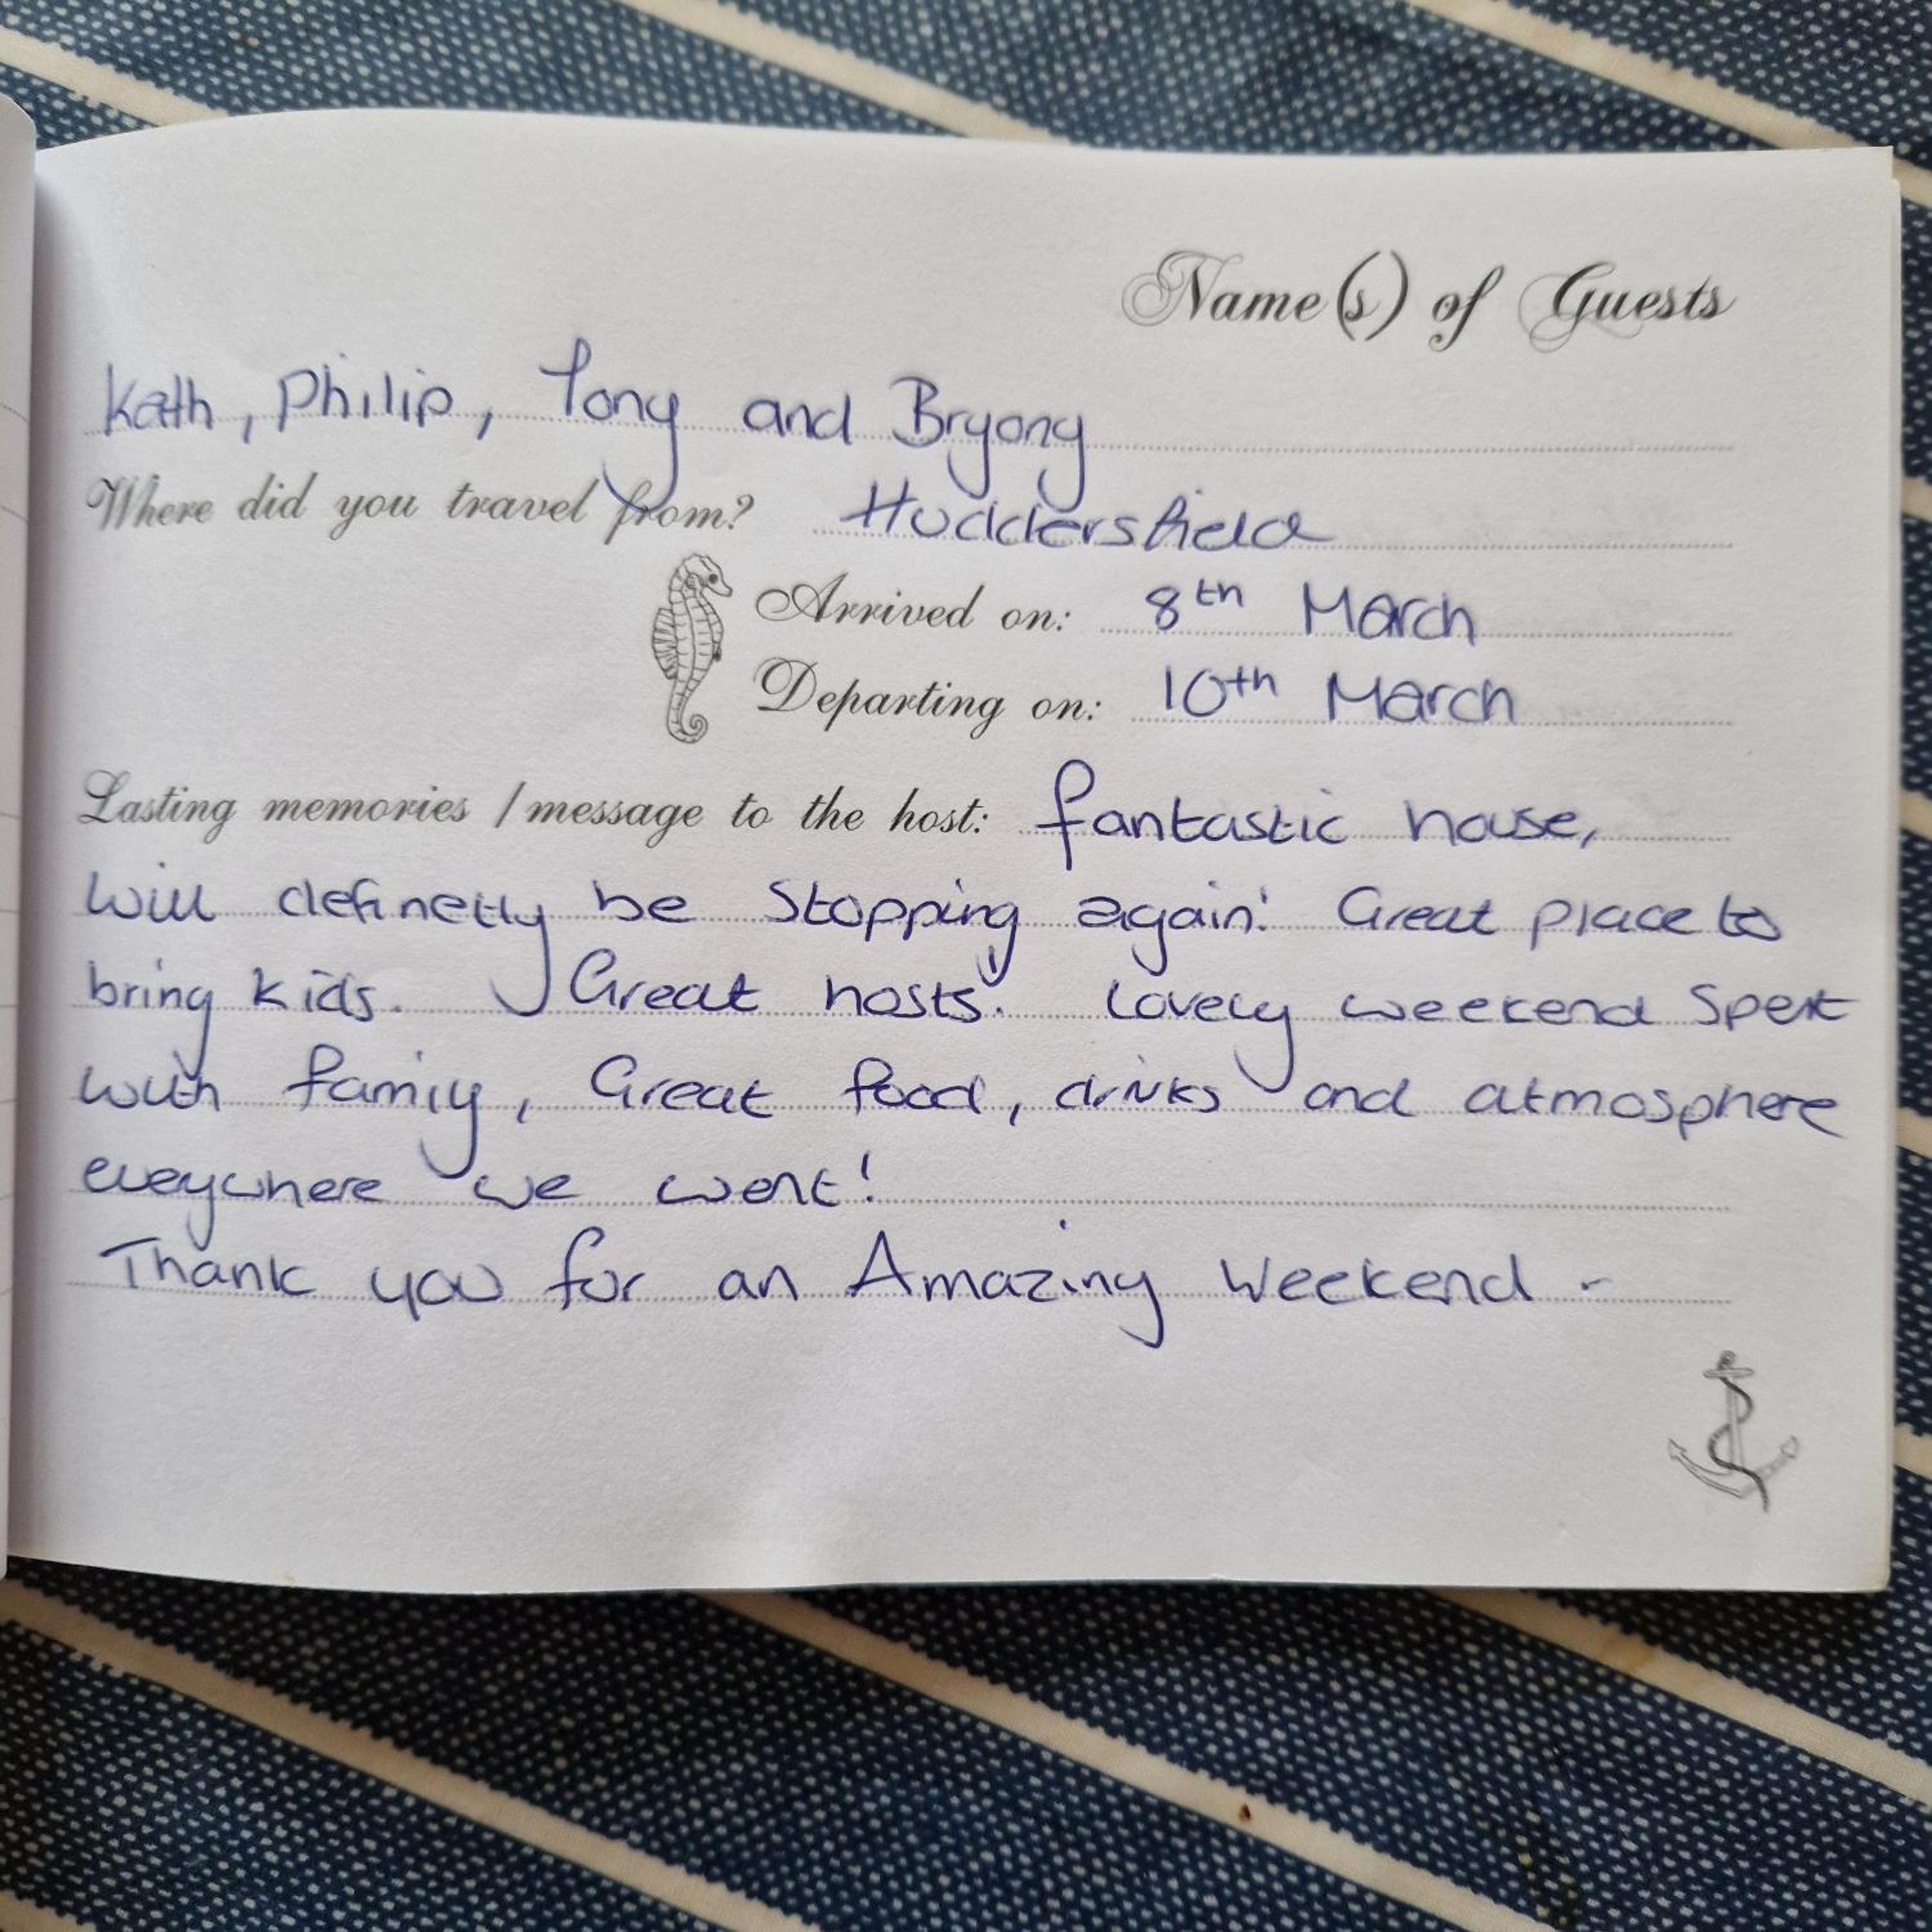 Name(s) of Guests
Kath, Philip, Tony and Bryony
Where did you travel from? Huddersfield
Arrived on: 8th March
Departing on: 10th March
Lasting memories / message to the host: fantastic house,
will definetly be Stopping again! Great place to
bring kids. Great hosts! Lovely weekend Spent
with family, Great food, drinks and atmosphere
eveywhere we went!
Thank you for an Amazing Weekend -